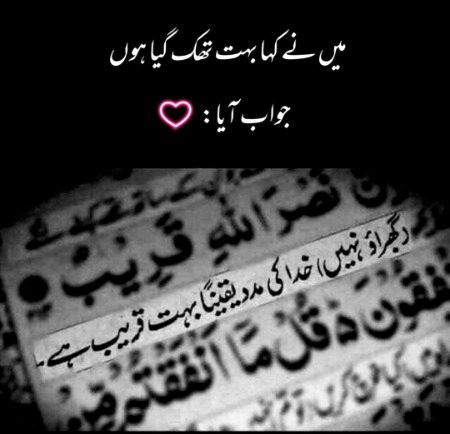 میں نے کہا بہت تھک گیا ہوں
جواب آیا :
نَصْرَ اللّٰهِ قَرِيْبٌ
(گھبراؤ نہیں) خدا کی مدد یقیناً بہت قریب ہے۔
قُلْ مَاۤ اَنْفَقْتُمْ مِّنْ